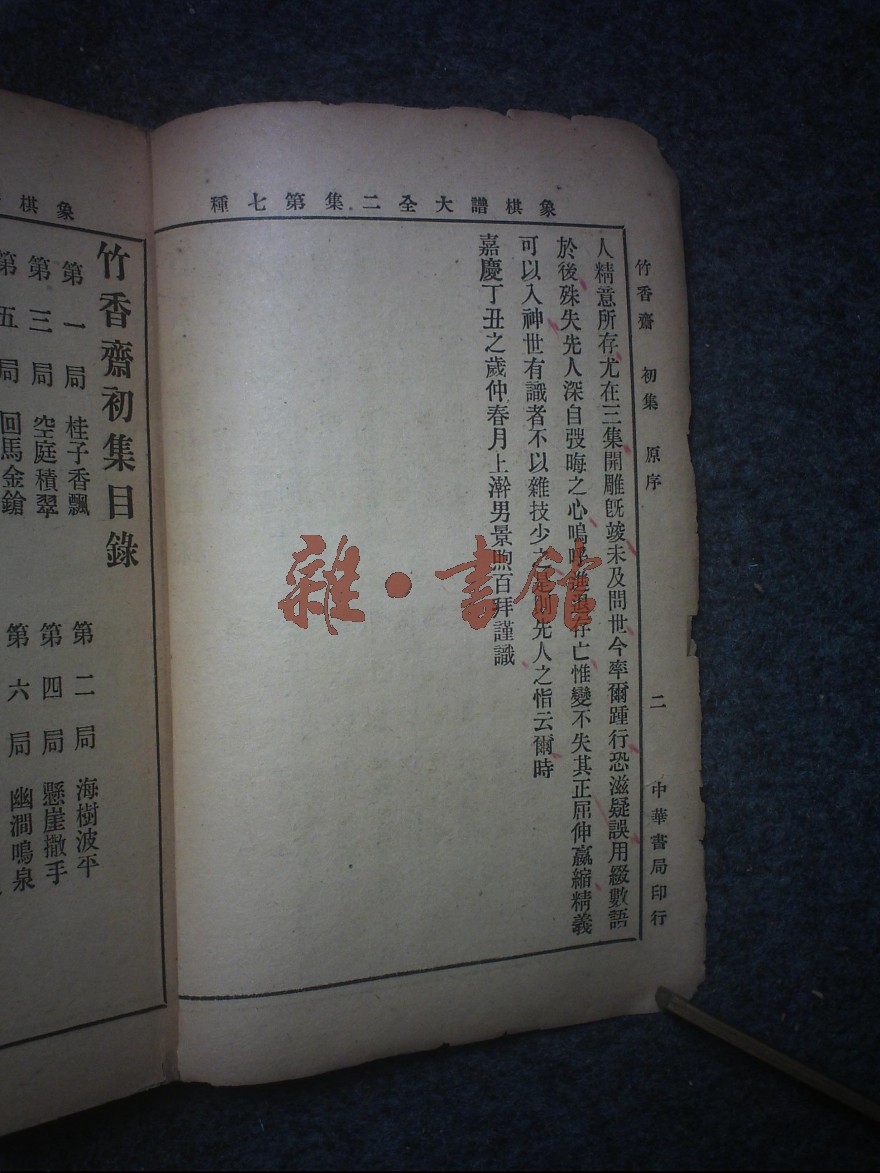 象棋譜大全二集第七種
竹香齋　初集　原序　二　中華書局印行
人精意所存尤在三集開雕旣竣未及問世今率爾踵行恐滋疑誤用綴數語
於後殊失先人深自弢晦之心嗚呼進退存亡惟變不失其正屈伸嬴縮精義
可以入神世有識者不以雜技少之是則先人之恉云爾時
嘉慶丁丑之歲仲春月上澣男景煦百拜謹識
雜·書館
象棋
竹香齋初集目錄
第一局　桂子香飄　第二局　海樹波平
第三局　空庭積翠　第四局　懸崖撒手
第五局　回馬金鎗　第六局　幽澗鳴泉